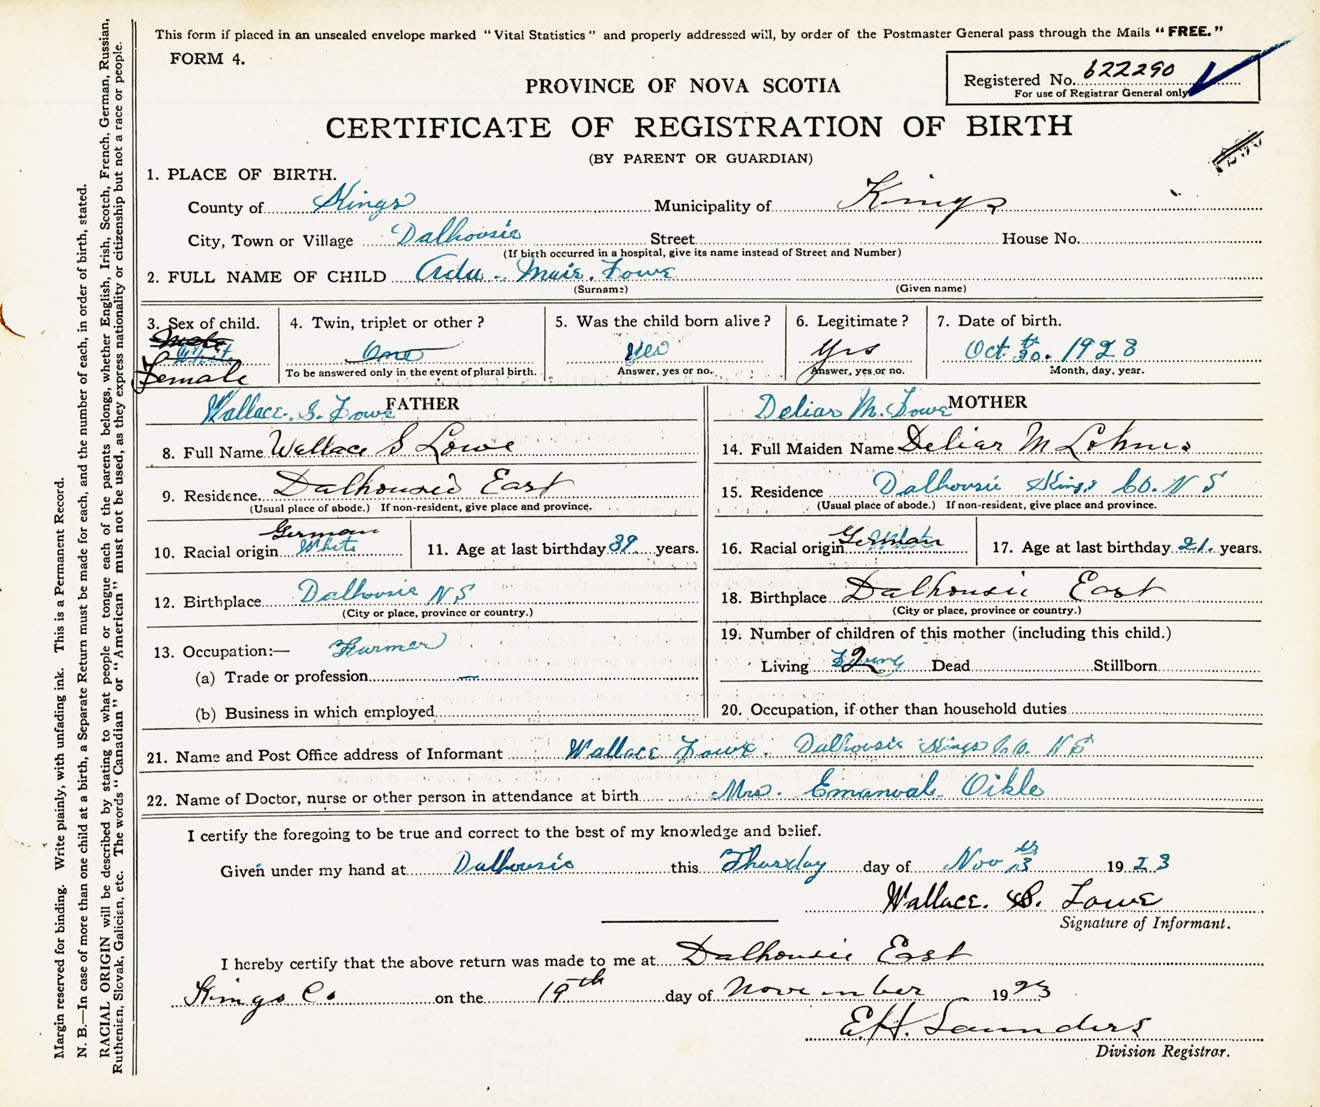 This form if placed in an unsealed envelope marked "Vital Statistics" and properly addressed will, by order of the Postmaster General pass through the Mails "FREE."
FORM 4.
Registered No. 622290
For use of Registrar General only
PROVINCE OF NOVA SCOTIA
CERTIFICATE OF REGISTRATION OF BIRTH
(BY PARENT OR GUARDIAN)
1. PLACE OF BIRTH.
County of Kings Municipality of Kings
City, Town or Village Dalhousie Street House No.
(If birth occurred in a hospital, give its name instead of Street and Number)
2. FULL NAME OF CHILD Ada. Muir. Lowe
(Surname) (Given name)
3. Sex of child. 4. Twin, triplet or other? 5. Was the child born alive? 6. Legitimate? 7. Date of birth.
Female One Yes Yes Oct 30th. 1923
To be answered only in the event of plural birth. Answer, yes or no. Answer, yes or no. Month, day, year.
Wallace. S. Lowe FATHER Deliar M. Lowe MOTHER
8. Full Name Wallace S Lowe 14. Full Maiden Name Deliar M Lohnes
9. Residence. Dalhousie East 15. Residence Dalhousie Kings Co. N S
(Usual place of abode.) If non-resident, give place and province. (Usual place of abode.) If non-resident, give place and province.
German German
10. Racial origin White 11. Age at last birthday 39 years. 16. Racial origin White 17. Age at last birthday 21. years.
12. Birthplace Dalhousie N S 18. Birthplace Dalhousie East
(City or place, province or country.) (City or place, province or country.)
13. Occupation:— Farmer 19. Number of children of this mother (including this child.)
Living 2 Dead Stillborn
(a) Trade or profession
(b) Business in which employed 20. Occupation, if other than household duties
21. Name and Post Office address of Informant Wallace Lowe. Dalhousie Kings Co. N S
22. Name of Doctor, nurse or other person in attendance at birth Mrs. Emanual Oikle
I certify the foregoing to be true and correct to the best of my knowledge and belief.
Given under my hand at Dalhousie this Thursday day of Nov 13th 1923
Wallace. S. Lowe
Signature of Informant.
I hereby certify that the above return was made to me at Dalhousie East
Kings Co on the 19th day of November 1923
E.H. Saunders
Division Registrar.
Margin reserved for binding. Write plainly, with unfading ink. This is a Permanent Record.
N. B.—In case of more than one child at a birth, a Separate Return must be made for each, and the number of each, in order of birth, stated.
RACIAL ORIGIN will be described by stating to what people or tongue each of the parents belongs, whether English, Irish, Scotch, French, German, Russian,
Ruthenian, Slovak, Galician, etc. The words "Canadian" or "American" must not be used, as they express nationality or citizenship but not a race or people.